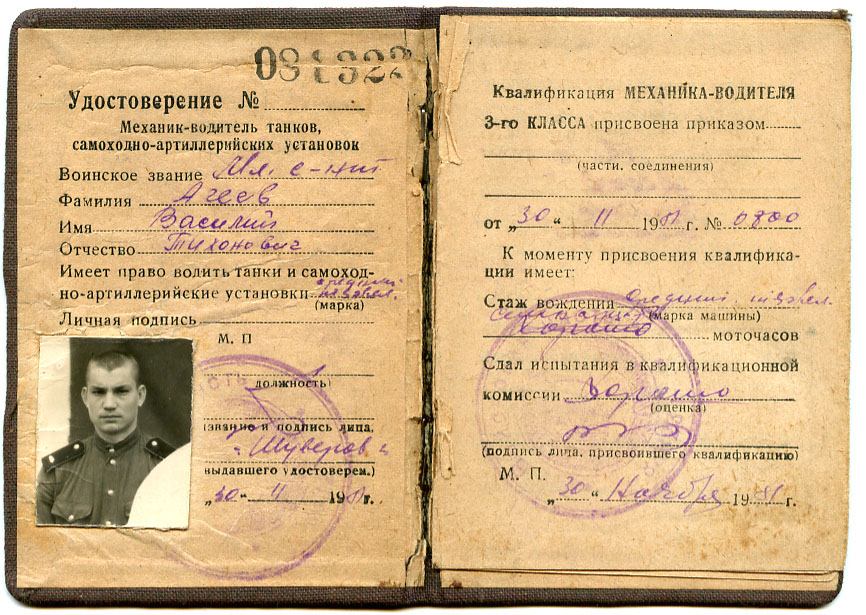 081322
Удостоверение №
Механик-водитель танков,
самоходно-артиллерийских установок
Воинское звание Мл. с-нт
Фамилия Агеев
Имя Василий
Отчество Тихонович
Имеет право водить танки и самоход-
но-артиллерийские установки средний
(марка)
Личная подпись
М. П
должность)
(звание и подпись лица,
выдавшего удостоверен.)
„30“ 11 19 г.
Квалификация МЕХАНИКА-ВОДИТЕЛЯ
3-го КЛАССА присвоена приказом
(части, соединения)
от „30“ 11 19 г. № 0800
К моменту присвоения квалифика-
ции имеет:
Стаж вождения средний
(марка машины)
хорошо моточасов
Сдал испытания в квалификационной
комиссии хорошо
(оценка)
(подпись лица, присвоившего квалификацию)
М. П.
„30“ Ноября 19 г.